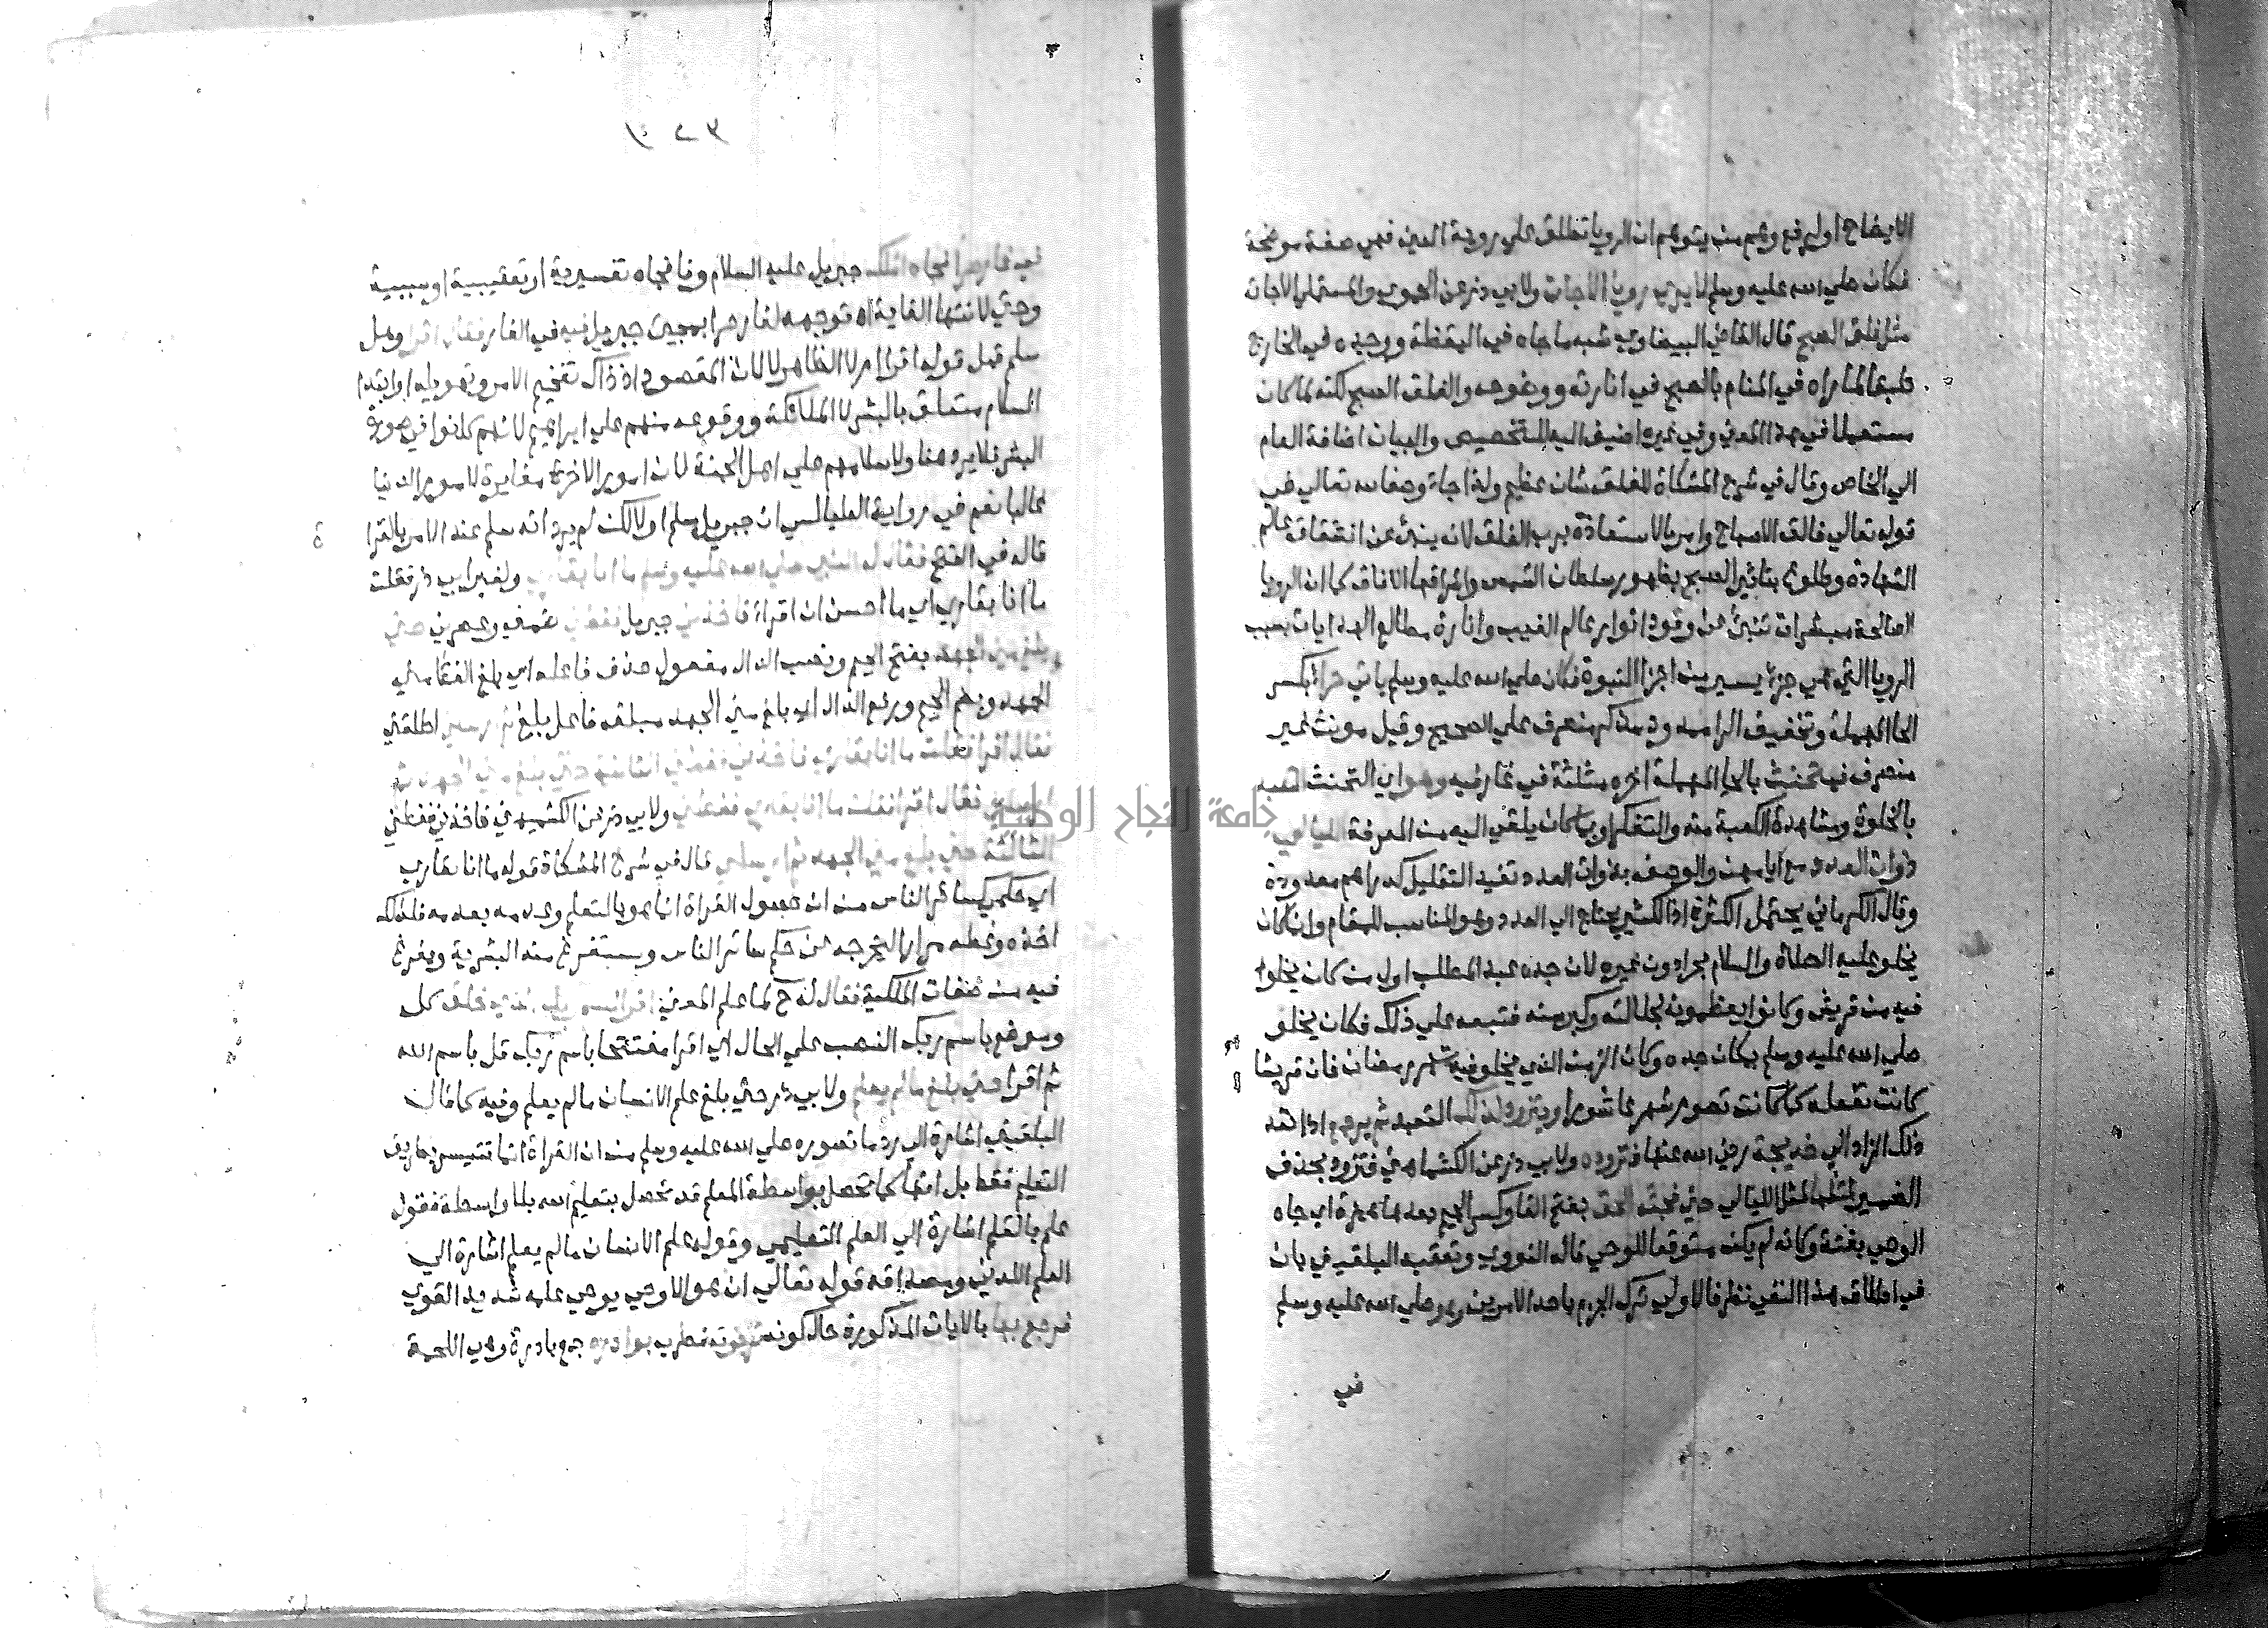 الايضاح او ليرفع وهم من يتوهم ان الرويا تطلق علي روية العين فهي صفة موضحة
فكان صلي الله عليه وسلم لا يري رويا الا جات ولابي ذر عن الحموي والمستملي الا جات
مثل فلق الصبح قال القاضي البيضاوي شبه ما جاه في اليقظة ووجده في الخارج
طبقا لما راه في المنام بالصبح في انارته ووضوحه والفلق الصبح لكنه لما كان
مستعملا في هذا المعني وفي غيره اضيف اليه للتخصيص والبيان اضافة العام
الي الخاص وقال في شرح المشكاة للفلق شان عظيم ولذا جاء وصفا لله تعالي في
قوله تعالي فالق الاصباح وامر بالاستعاذة برب الفلق لانه ينبئ عن انشقاق عالم
الشهادة وطلوع بتاثير الصبح بظهور سلطان الشمس واشراقها الافاق كما ان الرويا
الصالحة مبشرات تنبئ عن وقود انوار عالم الغيب وانارة مطالع الهدايات بسبب
الرويا التي هي جزء يسير من اجزا النبوة فكان صلي الله عليه وسلم ياتي حراء بكسر
الحا المهملة وتخفيف الرا ممدود مذكر منصرف علي الصحيح وقيل مونث غير
منصرف فيتحنث بالحا المهملة اخره مثلثة في غار فيه وهو اي التحنث التعبد
بالخلوة ومشاهدة الكعبة منه والتفكر او بما كان يلقي اليه من المعرفة الليالي
ذوات العدد مع ايامهن والوصف بذوات العدد تفيد التقليل كدراهم معدودة
وقال الكرماني يحتمل الكثرة اذ الكثير يحتاج الي العدد وهو المناسب للمقام وانما كان
يخلو عليه الصلاة والسلام بحرا دون غيره لان جده عبد المطلب اول من كان يخلوا
فيه من قريش وكانوا يعظمونه لجلالته وكبر سنه فتبعه علي ذلك فكان يخلو
صلي الله عليه وسلم بمكان جده وكان الزمن الذي يخلو فيه شهر رمضان فان قريشا
كانت تفعله كما كانت تصوم شهر عاشورا ويتزود لذلك التعبد ثم يرجع اذا نفد
ذلك الزاد الي خديجة رضي الله عنها فتزوده ولابي ذر عن الكشميهني فتزود بحذف
الضمير لمثلها لمثل الليالي حتي فجئه الحق بفتح الفا وكسر الجيم بعدها همزة اي جاه
الوحي بغتة وكانه لم يكن متوقعا للوحي قاله النووي وتعقبه البلقيني بان
في اطلاق هذا النفي نظر فالاولي ترك الجزم باحد الامرين وهو صلي الله عليه وسلم
في
١٠٢٣
في غار حرا فجاه الملك جبريل عليه السلام وفا فجاه تفسيرية او تعقيبية او سببية
وحتي لانتها الغاية اي توجهه لغار حرا بمجيئ جبريل فيه في الغار فقال اقرا وهل
سلم قبل قوله اقرا ام لا الظاهر لا لان المقصود اذ ذاك تفخيم الامر وتهويله او ابتدا
السلام متعلق بالبشر لا الملائكة ووقوعه منهم علي ابراهيم لانهم كانوا في صورة
البشر فلا يرد هنا ولا سلامهم علي اهل الجنة لان امور الاخرة مغايرة لامور الدنيا
غالبا نعم في رواية الطيالسي ان جبريل سلم اولا لكن لم يرد انه سلم عند الامر بالقرا
ة
قاله في الفتح فقال له النبي صلي الله عليه وسلم ما انا بقاري ولغير ابي ذر فقلت
ما انا بقاري اي ما احسن ان اقرا فاخذني جبريل فغطني ضمني وعصرني حتي
بلغ مني الجهد بفتح الجيم ونصب الدال مفعول حذف فاعله اي بلغ الغط مني
الجهد وبضم الجيم ورفع الدال اي بلغ مني الجهد مبلغه فاعل بلغ ثم ارسلني اطلقني
فقال اقرا فقلت ما انا بقاري فاخذني فغطني الثانية حتي بلغ مني الجهد ثم
ارسلني فقال اقرا فقلت ما انا بقاري فغطني ولابي ذر عن الكشميهني فاخذني فغطني
الثالثة حتي بلغ مني الجهد ثم ارسلني قال في شرح المشكاة قوله ما انا بقاري
اي حكمي كسائر الناس من ان حصول القراة انما هو بالتعلم وعدمه بعدمه فلذلك
اخذه وغطه مرارا ليخرجه عن حكم سائر الناس ويستفرغ منه البشرية ويفرغ
فيه من صفات الملكية فقال له ح لما علم المعني اقرا باسم ربك الذي خلق كل
وموضع باسم ربك النصب علي الحال اي اقرا مفتتحا باسم ربك قل باسم الله
ثم اقرا حتي بلغ ما لم يعلم ولابي ذر حتي بلغ علم الانسان ما لم يعلم وفيه كما قال
البلقيني اشارة الي رد ما تصوره صلي الله عليه وسلم من ان القراة انما تتيسر بطريق
التعليم فقط بل انها كما تحصل بواسطة المعلم قد تحصل بتعليم الله بلا واسطة فقوله
علم بالقلم اشارة الي العلم التعليمي وقوله علم الانسان ما لم يعلم اشارة الي
العلم اللدني ومصداقه قوله تعالي ان هو الا وحي يوحي علمه شديد القوي
فرجع بها بالايات المذكورة حال كونه ترجف بوادره جمع بادرة وهي اللحمة
جامعة النجاح الوطنية